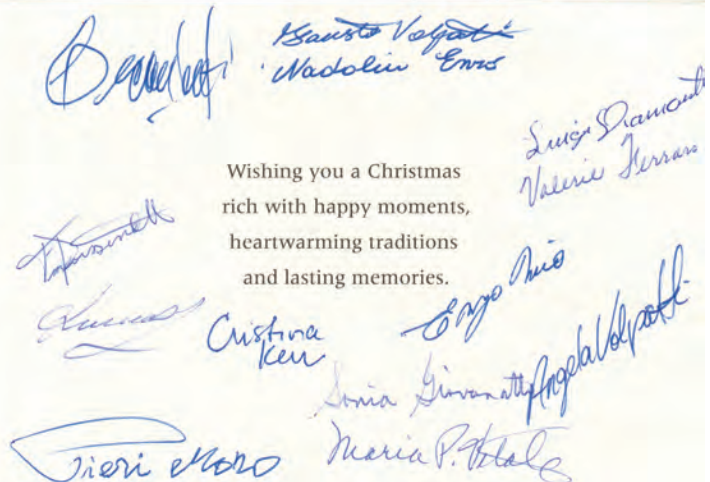 Fausto Volpatti
Nadalin Enus
Luigi Diamante
Valerie Ferraro
Wishing you a Christmas
rich with happy moments,
heartwarming traditions
and lasting memories.
Enzo
Cristina
Kerr
Angela Volpatti
Sonia Giovanatti
Pieri Moro
Maria P. Vitale